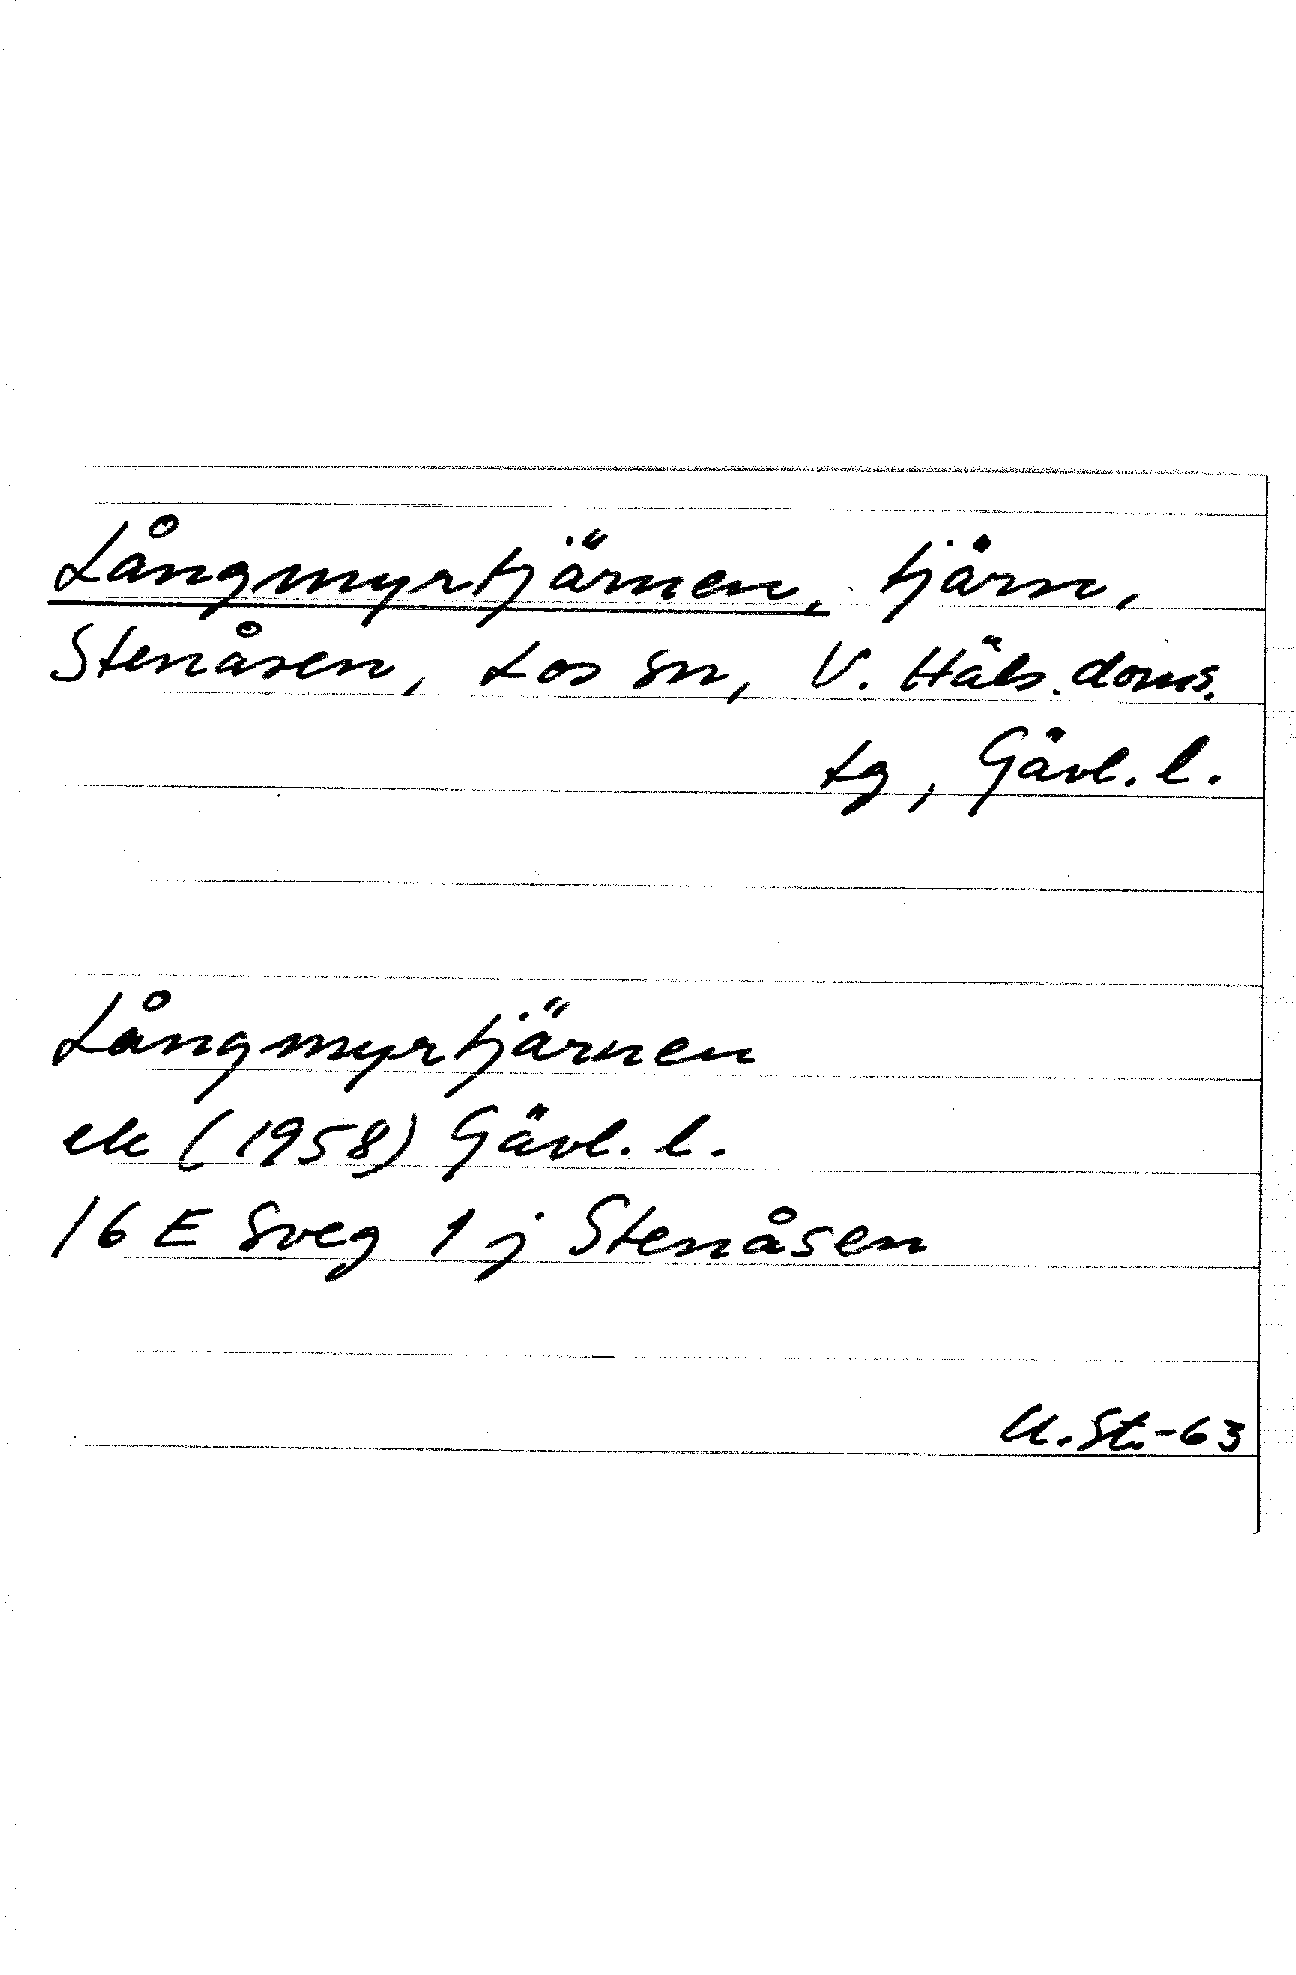 Långmyrtjärnen, tjärn,
Stenåsen, Los sn, V. Häls. doms.
tg, Gävl. l.
Långmyrtjärnen
ek (1958) Gävl. l.
16 E Sveg 1 j Stenåsen
U. St.-63